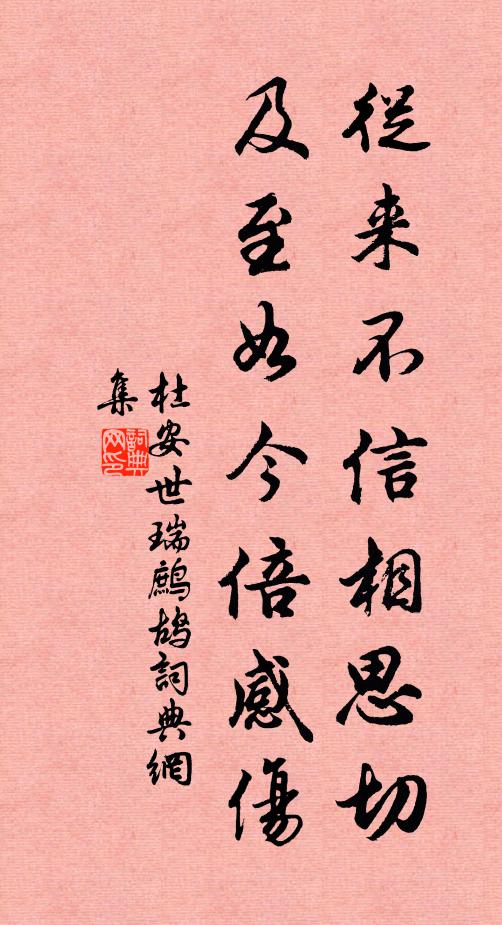 從来不信相思切
及至如今倍感傷
杜安世瑞鷓鴣詞典網
集
詞典网印